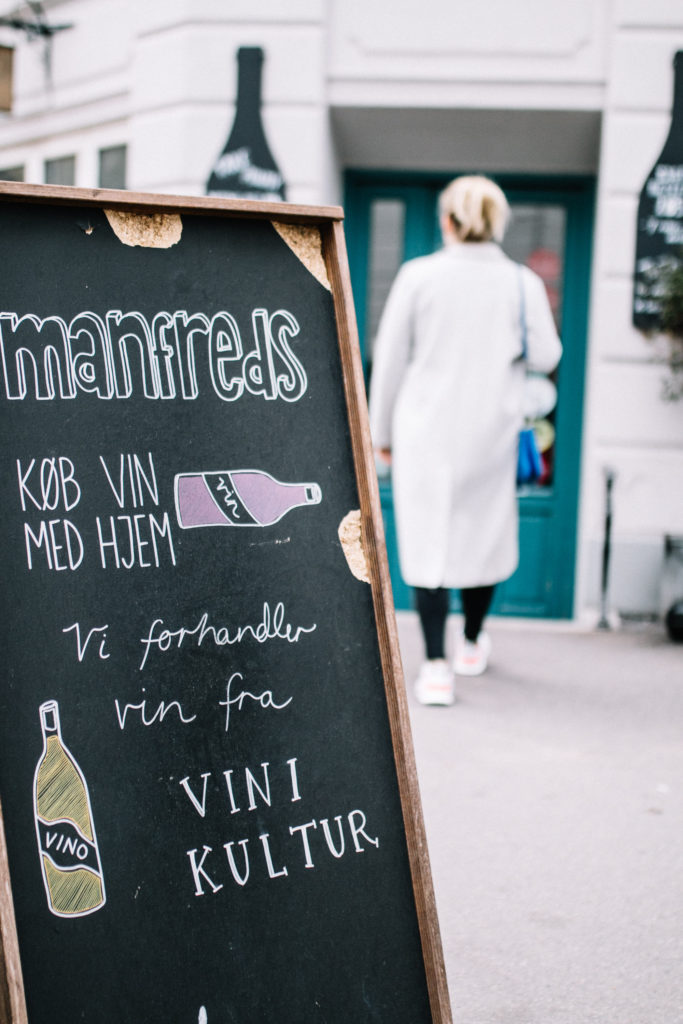 manfreds
KØB VIN
MED HJEM
VIN
Vi forhandler
vin fra
VINI
KULTUR
VINO